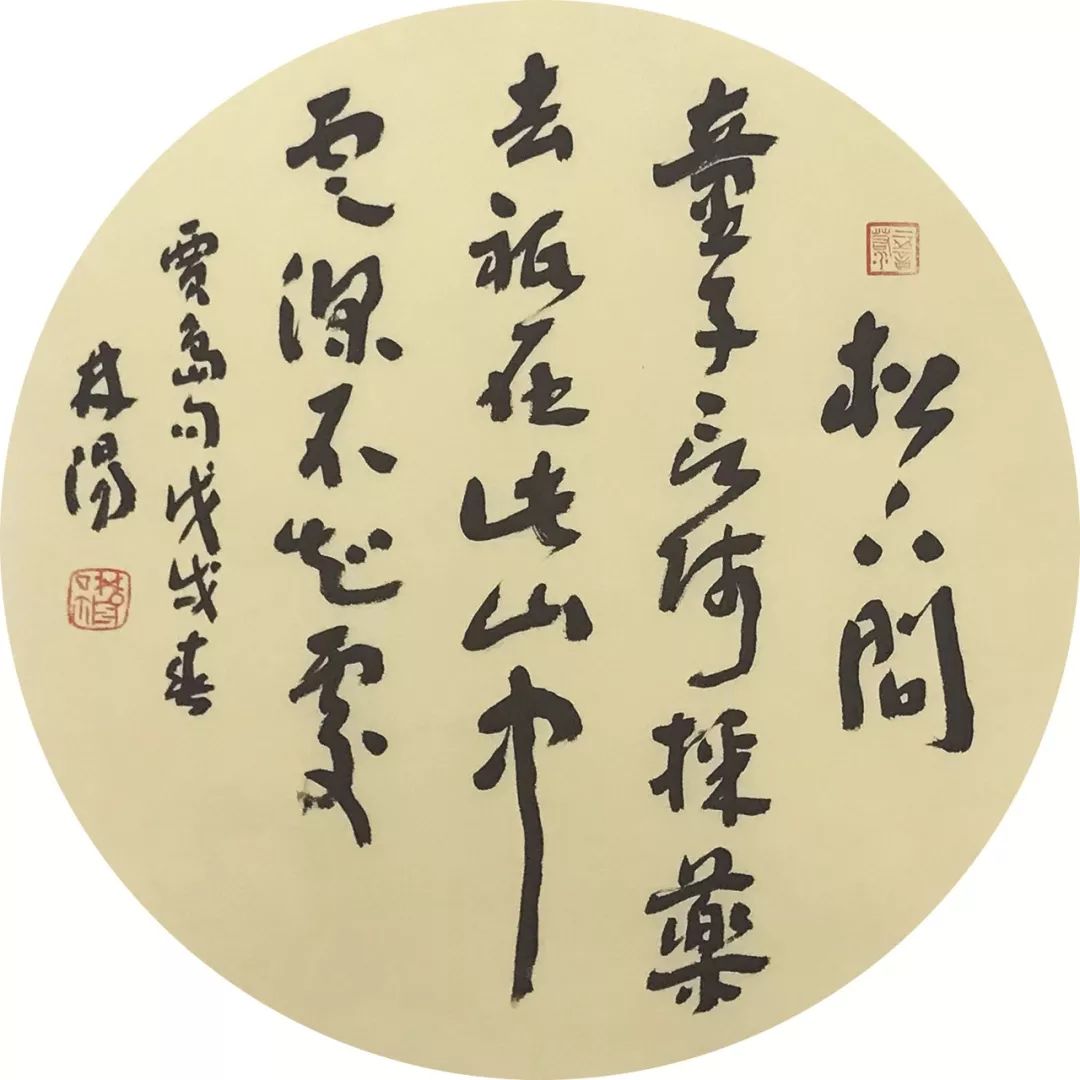 松下問
童子言師採藥
去祇在此山中
雲深不知處
賈島句戊戌春
林陽